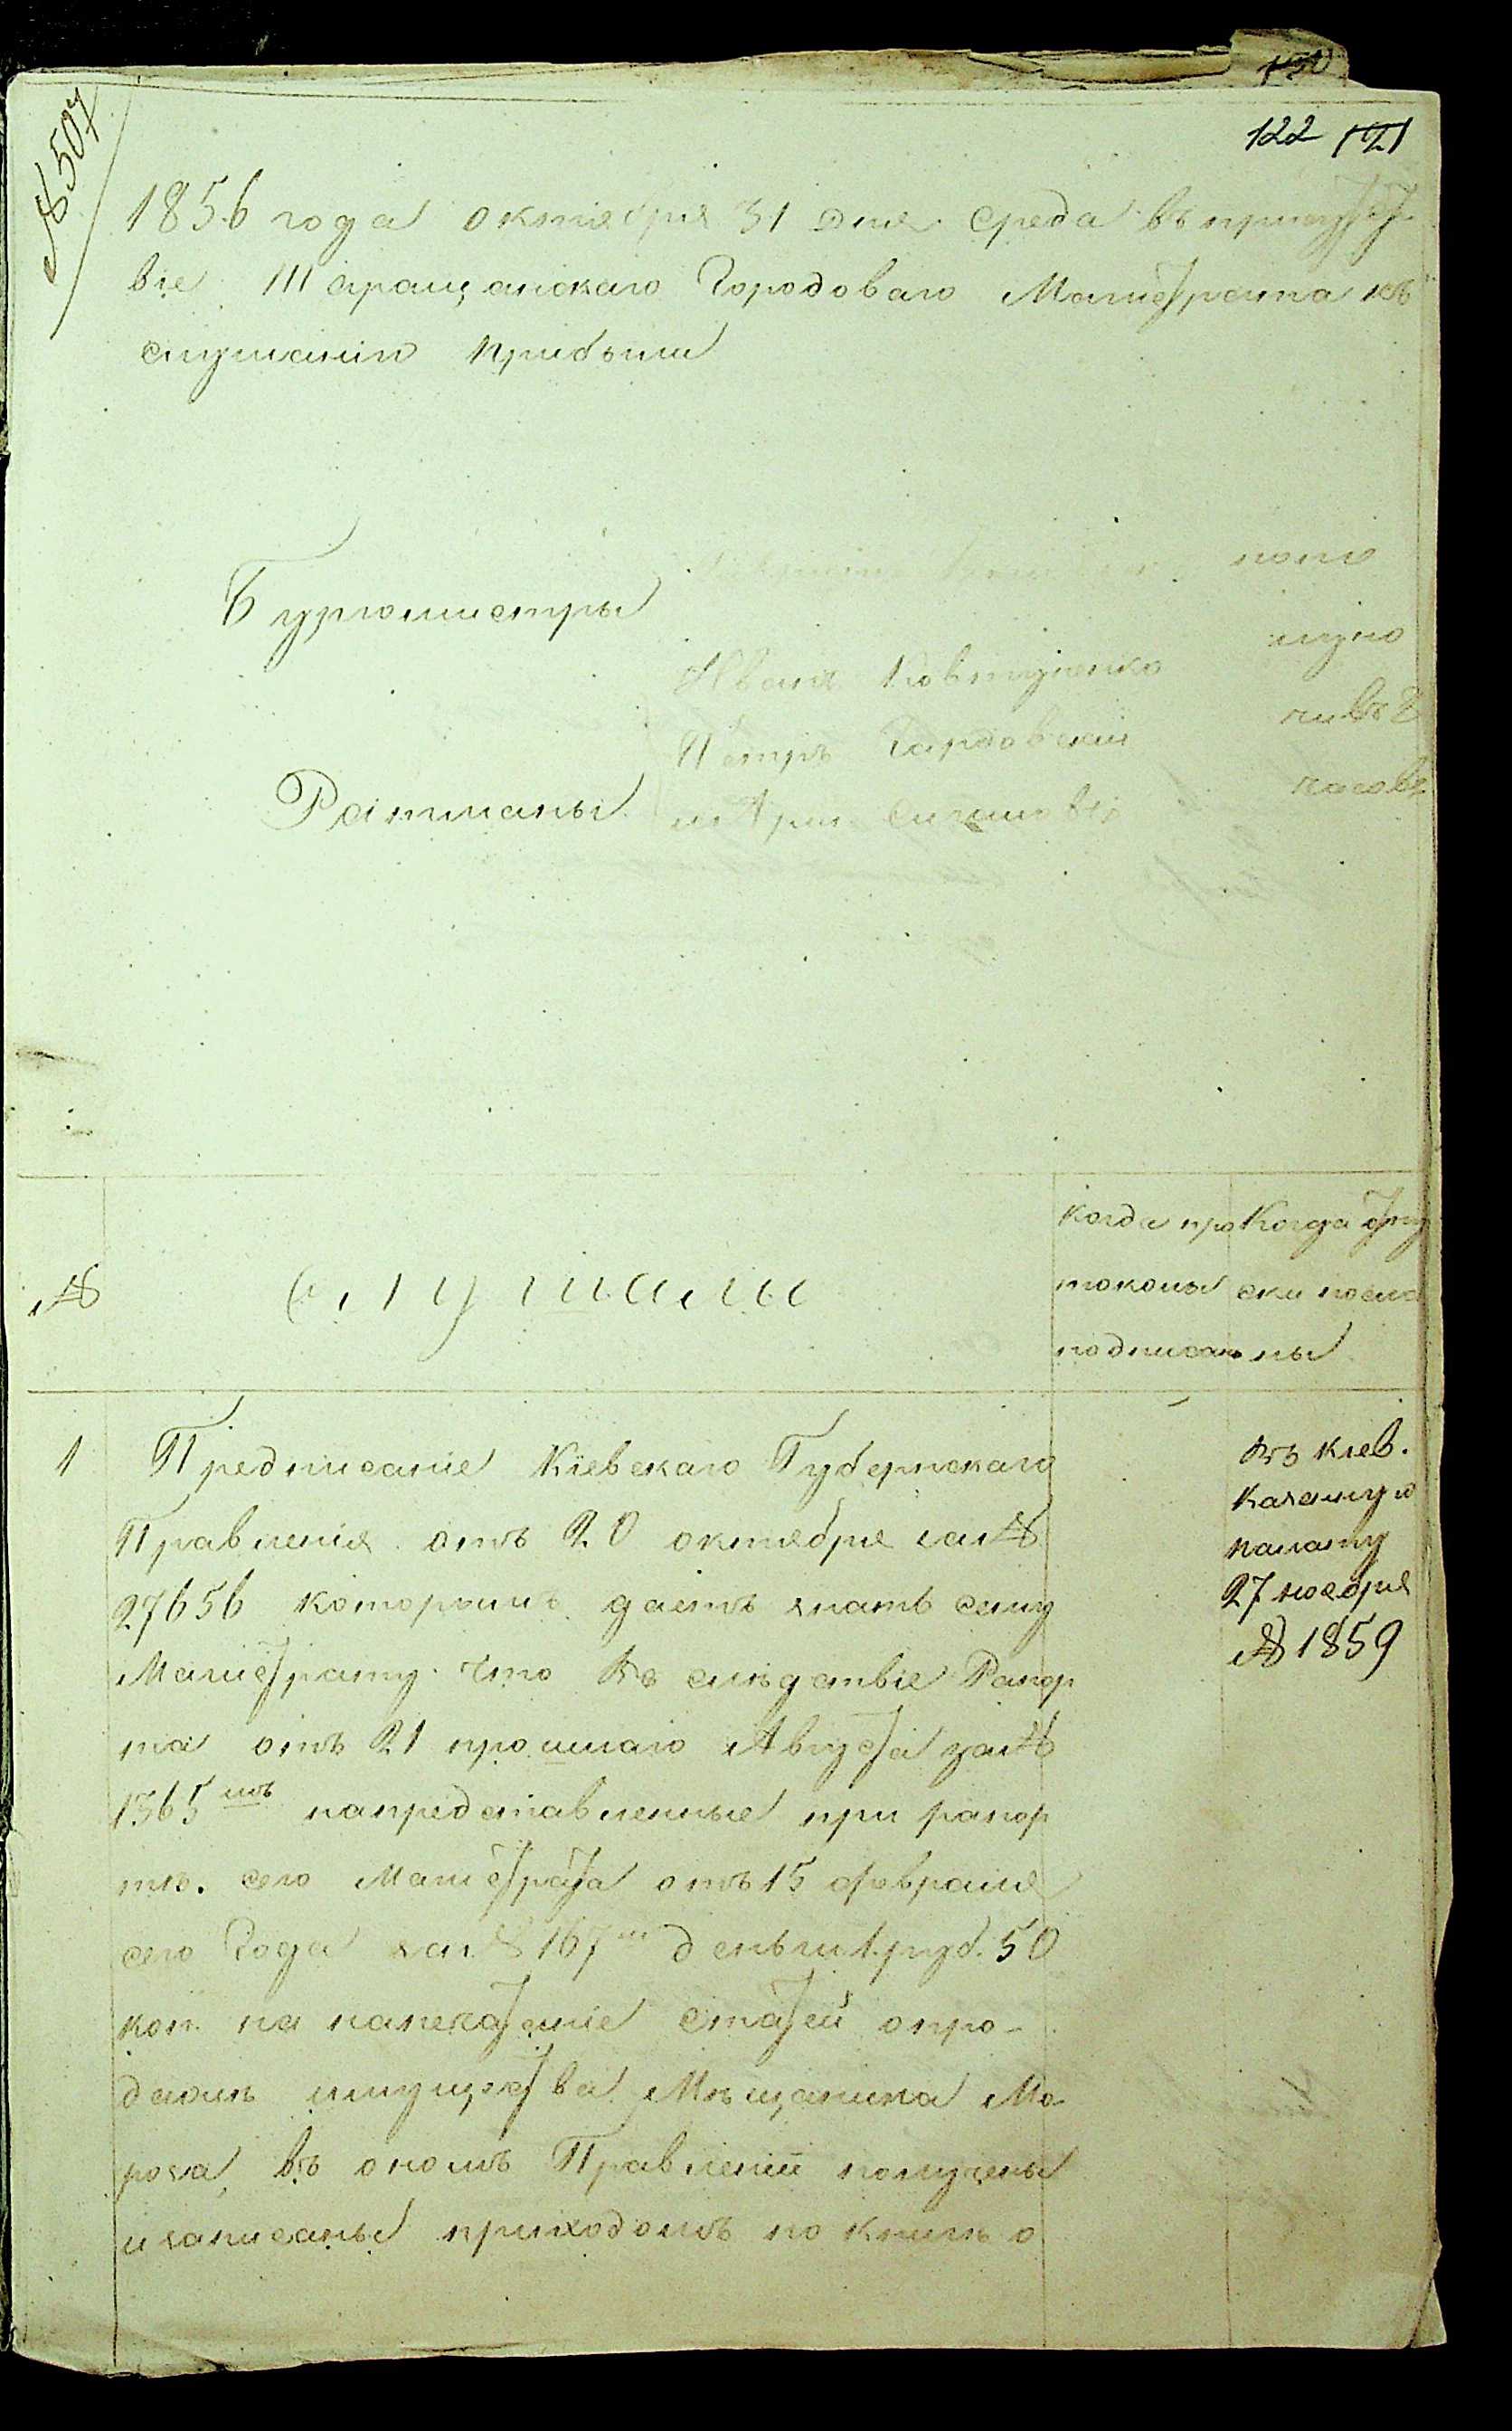 № 507
122
1856 года октября 31 дня среда въ присутст
віе Таращанскаго Городоваго Магистрата къ
слушанію прибыли
Бургомистры
Иванъ Ковтуненко
Петръ
Ратманы
по по
луно
чи въ 8
часовъ
№
Слушали
когда про
токолы
подписаны
Когда отпу
ски посла
ны
1
Предписаніе Кіевскаго Губернскаго
Правленія отъ 20 октября за №
27656 которымъ даетъ знать сему
Магистрату что въ слѣдствіе Рапор
та отъ 21 прошлаго Августа за №
1365мъ напредставленные при рапор
тѣ сего Магистрата отъ 15 февраля
сего Года за № 167м деньги 1 руб. 50
коп. на напечатаніе статей опро-
дажѣ имущества Мѣщанина Мо
роза, въ ономъ Правленіи получены
и записаны приходомъ по книгѣ о
въ Кіев.
Казенную
палату
27 ноября
№ 1859